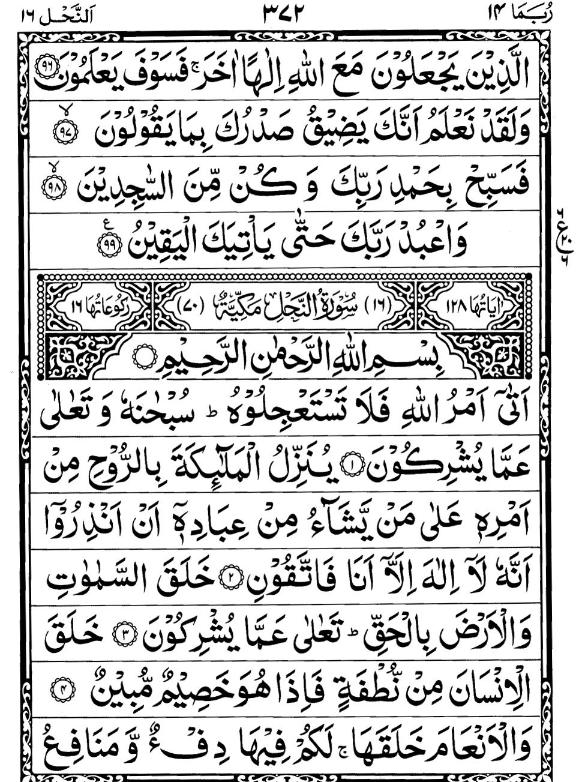 رُبَمَا ١٤ ٣٧٢ اَلنَّحْل ١٦
الَّذِيْنَ يَجْعَلُوْنَ مَعَ اللّٰهِ اِلٰهًا اٰخَرَ ۚ فَسَوْفَ يَعْلَمُوْنَ ٩٦
وَلَقَدْ نَعْلَمُ اَنَّكَ يَضِيْقُ صَدْرُكَ بِمَا يَقُوْلُوْنَ ۙ ٩٧
فَسَبِّحْ بِحَمْدِ رَبِّكَ وَكُنْ مِّنَ السّٰجِدِيْنَ ۙ ٩٨
وَاعْبُدْ رَبَّكَ حَتّٰى يَاْتِيَكَ الْيَقِيْنُ ع ٩٩
٦ ع ٢٠ ٦
اٰيَاتُهَا ١٢٨ (١٦) سُوْرَةُ النَّحْلِ مَكِّيَّةٌ (٧٠) رُكُوْعَاتُهَا ١٦
بِسْمِ اللّٰهِ الرَّحْمٰنِ الرَّحِيْمِ
اَتٰۤى اَمْرُ اللّٰهِ فَلَا تَسْتَعْجِلُوْهُ ؕ سُبْحٰنَهٗ وَتَعٰلٰى
عَمَّا يُشْرِكُوْنَ ١ يُنَزِّلُ الْمَلٰٓئِكَةَ بِالرُّوْحِ مِنْ
اَمْرِهٖ عَلٰى مَنْ يَّشَآءُ مِنْ عِبَادِهٖۤ اَنْ اَنْذِرُوْۤا
اَنَّهٗ لَاۤ اِلٰهَ اِلَّاۤ اَنَا فَاتَّقُوْنِ ٢ خَلَقَ السَّمٰوٰتِ
وَالْاَرْضَ بِالْحَقِّ ؕ تَعٰلٰى عَمَّا يُشْرِكُوْنَ ٣ خَلَقَ
الْاِنْسَانَ مِنْ نُّطْفَةٍ فَاِذَا هُوَ خَصِيْمٌ مُّبِيْنٌ ٤
وَالْاَنْعَامَ خَلَقَهَا ۚ لَكُمْ فِيْهَا دِفْءٌ وَّمَنَافِعُ